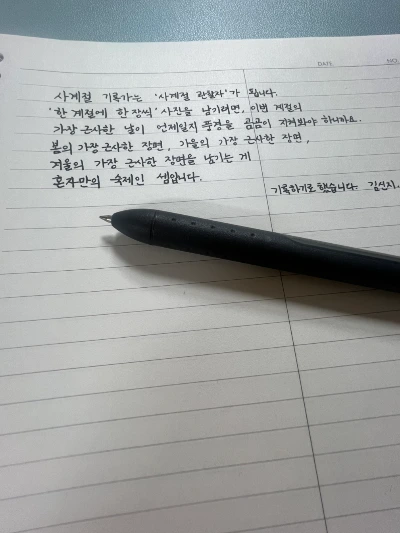 DATE. NO.
사계절 기록가는 '사계절 관찰자'가 됩니다.
'한 계절에 한 장씩' 사진을 남기려면, 이번 계절의
가장 근사한 날이 언제일지 풍경을 곰곰이 지켜봐야 하니까요.
봄의 가장 근사한 장면, 가을의 가장 근사한 장면,
겨울의 가장 근사한 장면을 남기는 게
혼자만의 숙제인 셈입니다.
기록하기로 했습니다. 김신지.